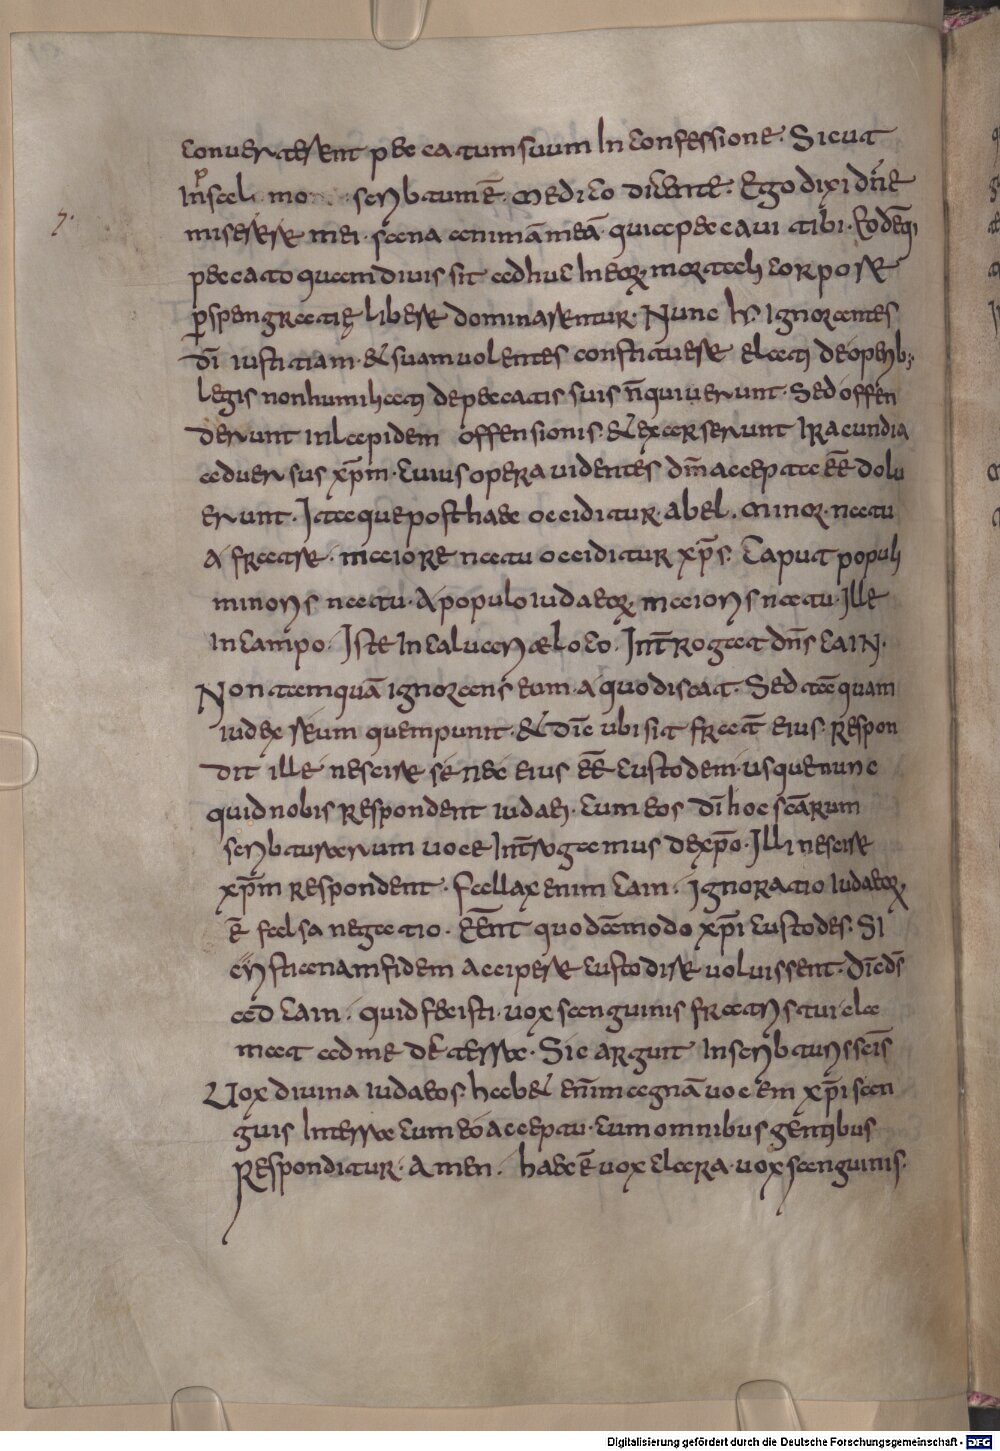 converterent peccatum suum in confessione. Sicut
in psal mo scribtum ē. medico dicente. Ego dixi dn̄e
miserere mei. sana animā meā. quia peccavi tibi. Eodēq;
7.
peccato quamdiu is sit adhuc in eoꝝ mortali corpore
ꝑ spem gratię libere dominarentur. Nunc h. ignorantes
dī iustitiam. & suam volentes constituere elati de operib;
legis non humiliati de peccatis suis n̄ quiuerunt. Sed offen
derunt in lapidem offensionis. & exarserunt iracundia
adversus xp̄m. cuius opera videntes dn̄m accepta eē dolu
erunt. Itaque post haec occiditur abel. minor natu
a fratre. maiore natu occiditur xp̄s. caput populi
minoris natu. a populo iudaeoꝝ maioris natu. Ille
in campo. Iste in calvariæ loco. Int̄rogat dn̄s cain.
Non tamquā ignorans eum a quo discat. Sed tāquam
iudex reum quem punit. & dīc ubi sit frat̄ eius. respon
dit ille nescire se nec eius eē custodem. usque nunc
quid nobis respondent iudaei. cum eos dī hoc scārum
scribturarum voce int̄rogamus de xp̄o. Illi nescire
xp̄m respondent. Fallax enim cain. ignoratio iudaeoꝝ
ē falsa negatio. Eēnt quodāmodo xp̄i custodes. Si
cristianam fidem accipere custodire voluissent. Dīc ds̄
ad cain. quid fecisti. vox sanguinis fratris tui cla
mat ad me de terra. Sic arguit in scribturis scīs
Vox divina iudaeos. habet enim magnā vocem xp̄i san
guis in terra cum eo accepto. cum omnibus gentibus
Responditur. amen. haec ē vox clara. vox sanguinis.
Digitalisierung gefördert durch die Deutsche Forschungsgemeinschaft - DFG